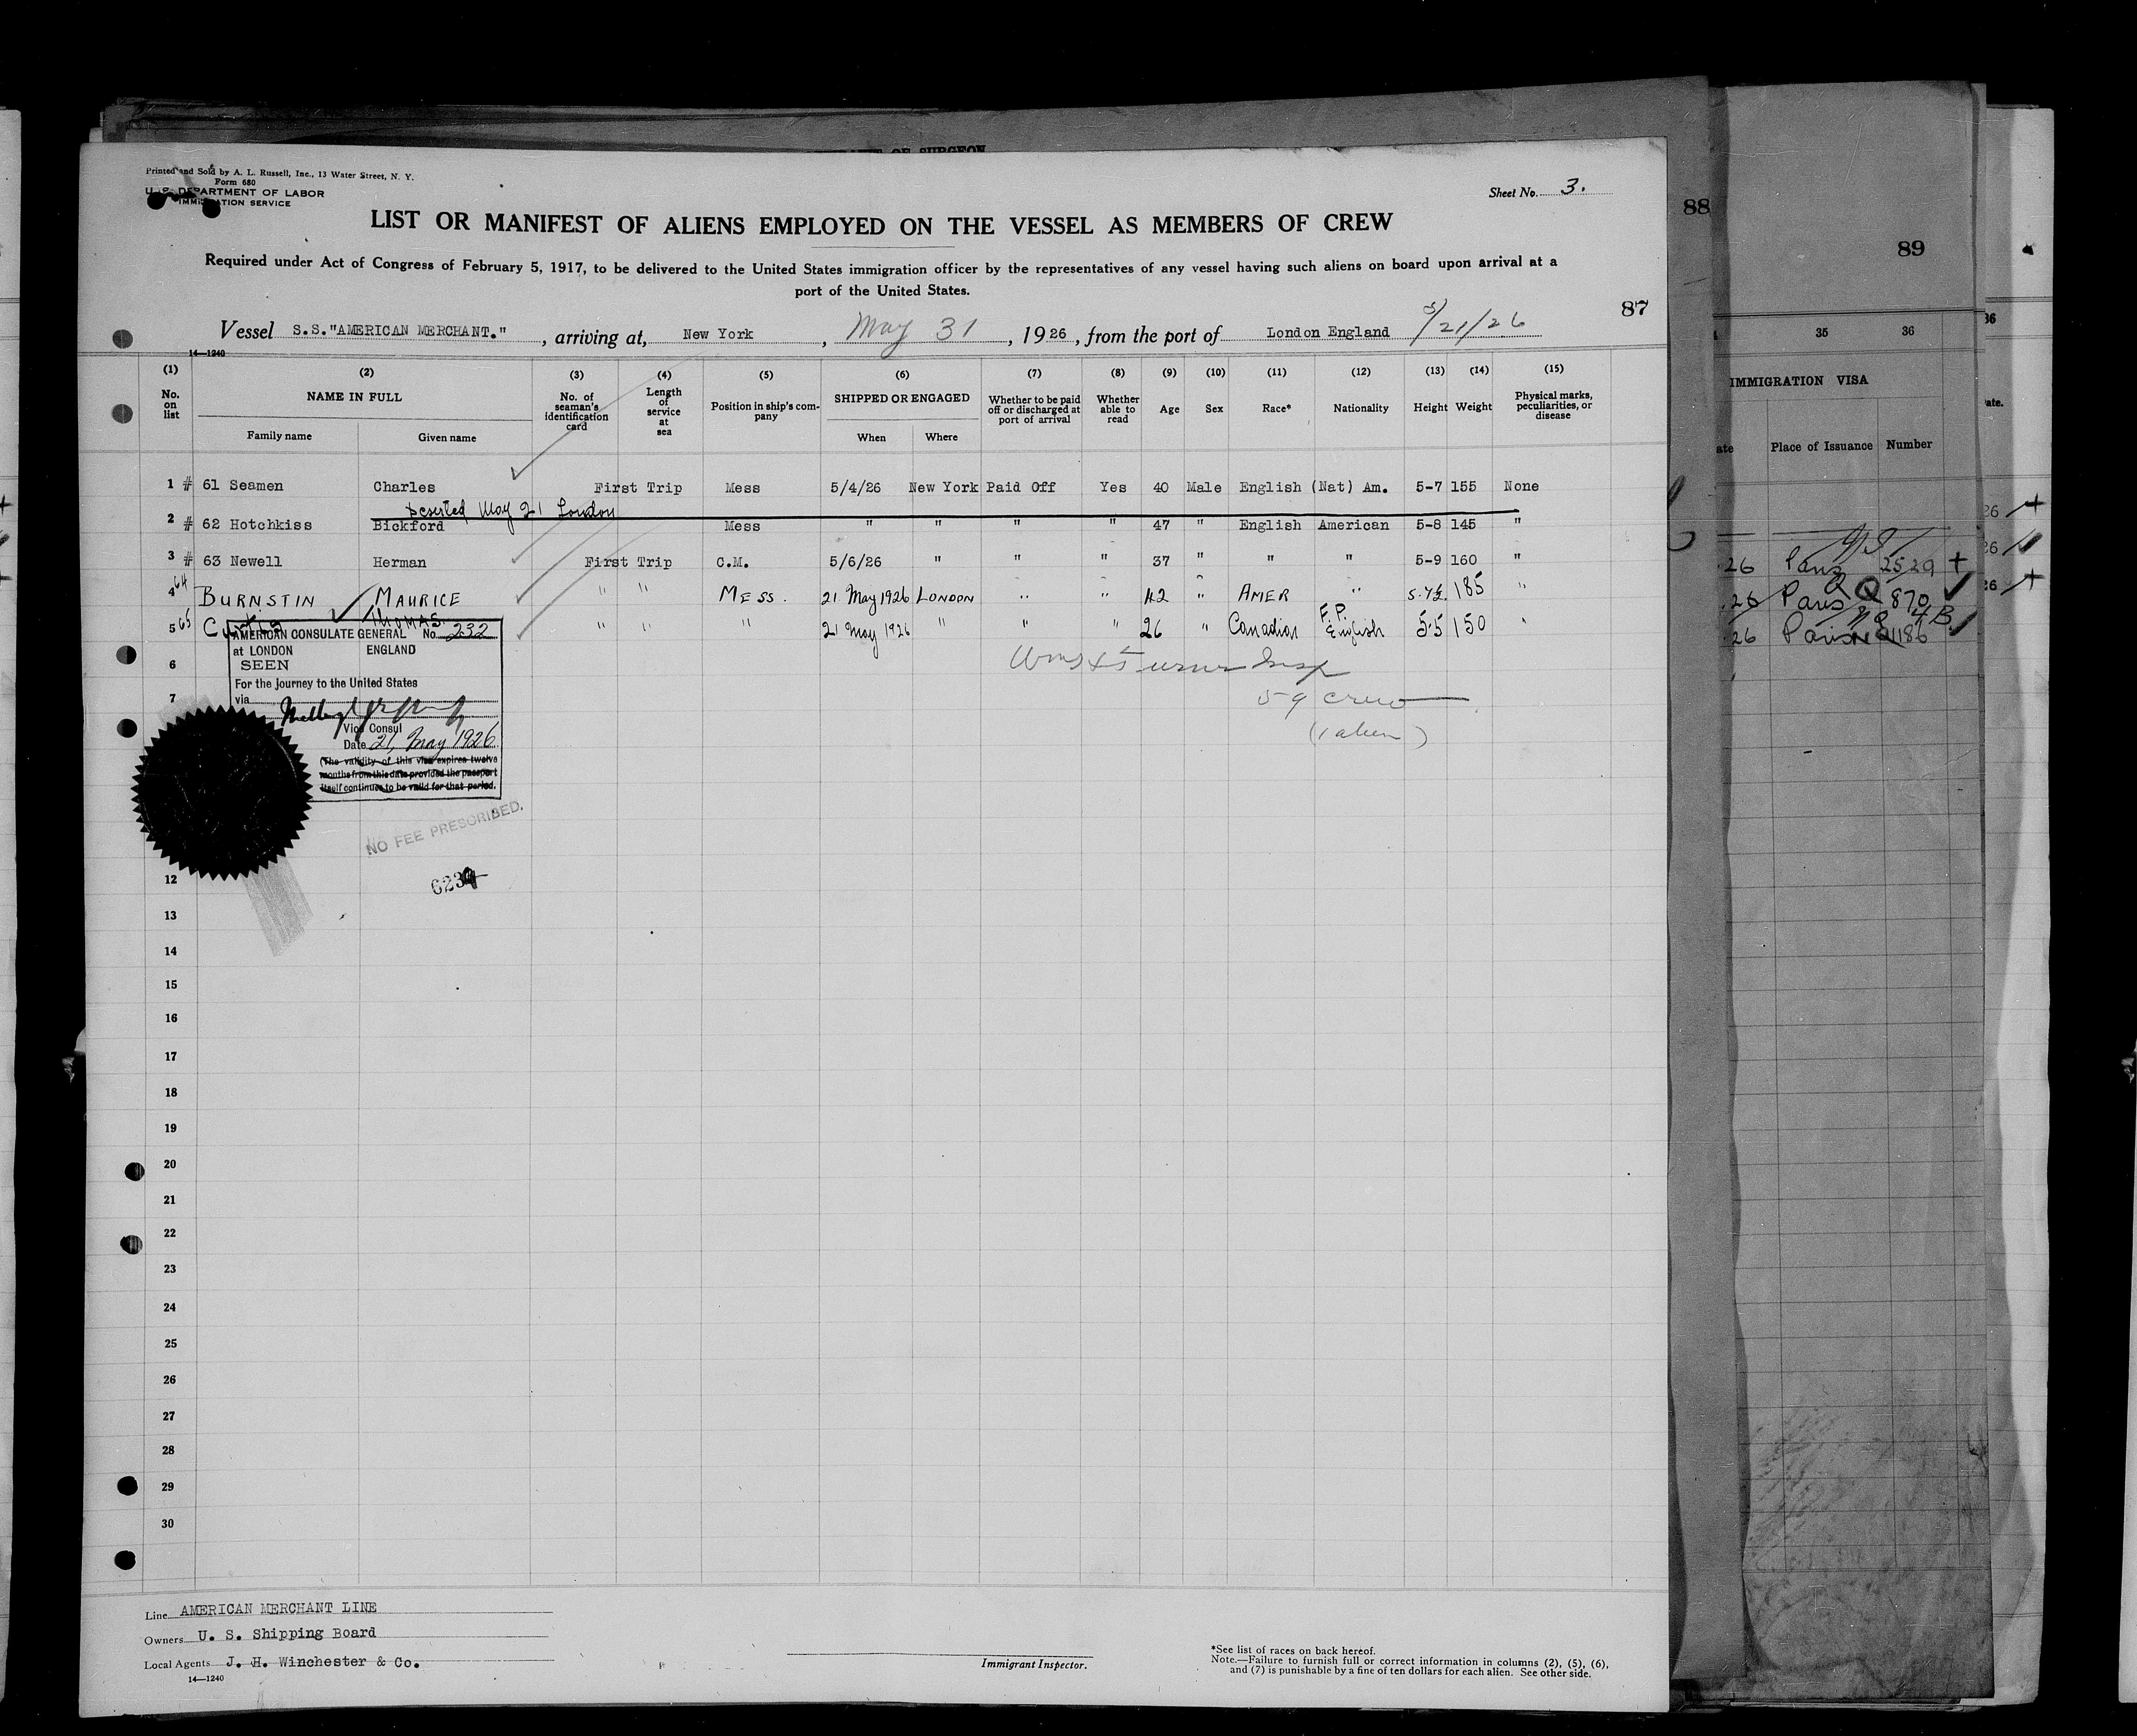 Printed and Sold by A. L. Russell, Inc., 13 Water Street, N. Y.
Form 680
U. S. DEPARTMENT OF LABOR
IMMIGRATION SERVICE
OF SURGEON
Sheet No. 3.
LIST OR MANIFEST OF ALIENS EMPLOYED ON THE VESSEL AS MEMBERS OF CREW
Required under Act of Congress of February 5, 1917, to be delivered to the United States immigration officer by the representatives of any vessel having such aliens on board upon arrival at a
port of the United States.
87
Vessel S.S. "AMERICAN MERCHANT." , arriving at, New York , May 31 , 1926 , from the port of London England 5/21/26
14—1240
(1) (2) (3) (4) (5) (6) (7) (8) (9) (10) (11) (12) (13) (14) (15)
No. on list NAME IN FULL No. of seaman's identification card Length of service at sea Position in ship's company SHIPPED OR ENGAGED Whether to be paid off or discharged at port of arrival Whether able to read Age Sex Race* Nationality Height Weight Physical marks, peculiarities, or disease
Family name Given name When Where
1 # 61 Seamen Charles First Trip Mess 5/4/26 New York Paid Off Yes 40 Male English (Nat) Am. 5-7 155 None
Deserted May 21 London
2 # 62 Hotchkiss Bickford Mess " " " " 47 " English American 5-8 145 "
3 # 63 Newell Herman First Trip C.M. 5/6/26 " " " 37 " " " 5-9 160 "
4 64 BURNSTIN MAURICE " " MESS. 21 May 1926 LONDON " " 42 " AMER " 5.7½ 185 "
5 65 Curtis THOMAS. " " " 21 May 1926 " " " 26 " Canadian F.P. English 5.5 150 "
AMERICAN CONSULATE GENERAL No. 232
at LONDON ENGLAND
SEEN
For the journey to the United States
via
Vice Consul
Date 21, May 1926
(The validity of this visa expires twelve
months from this date provided the passport
itself continues to be valid for that period.
NO FEE PRESCRIBED.
6
7
59 crew
(1 alien)
12
13
14
15
16
17
18
19
20
21
22
23
24
25
26
27
28
29
30
Line AMERICAN MERCHANT LINE
Owners U. S. Shipping Board
Local Agents J. H. Winchester & Co.
14—1240
Immigrant Inspector.
*See list of races on back hereof.
Note.—Failure to furnish full or correct information in columns (2), (5), (6),
and (7) is punishable by a fine of ten dollars for each alien. See other side.
88
89
35 36
IMMIGRATION VISA
Place of Issuance Number
26 Paris 2529
26 Paris 870
26 Paris 1186